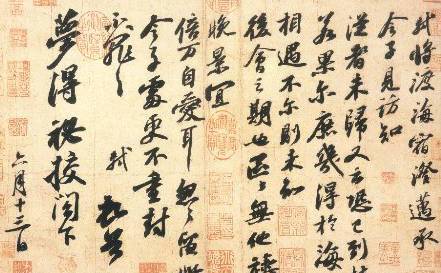 軾將渡海宿澄邁承
令子見訪知
從者未歸又云恐已到
若果尔庶幾得於海
相遇不尔則未知
後會之期也區〻無他禱
晚景宜
倍萬自愛耳忽〻留此
令子處更不重封
不罪〻 軾 頓首
夢得秘校閣下
六月十三日